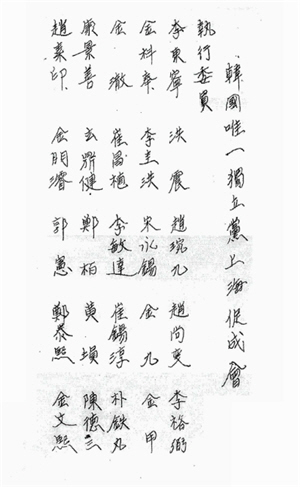 韓國唯一獨立黨上海促成會
執行委員
李東寧 洪震 趙琬九 趙尚燮 李裕弼
金科奉 李圭洪 宋永錫 金九 金甲
金澈 崔昌植 李敏達 崔錫淳 朴鉄丸
嚴景善 玄鼎健 鄭柏 黃塤 陳德三
趙素印 金明濬 郭憲 鄭泰熙 金文熙